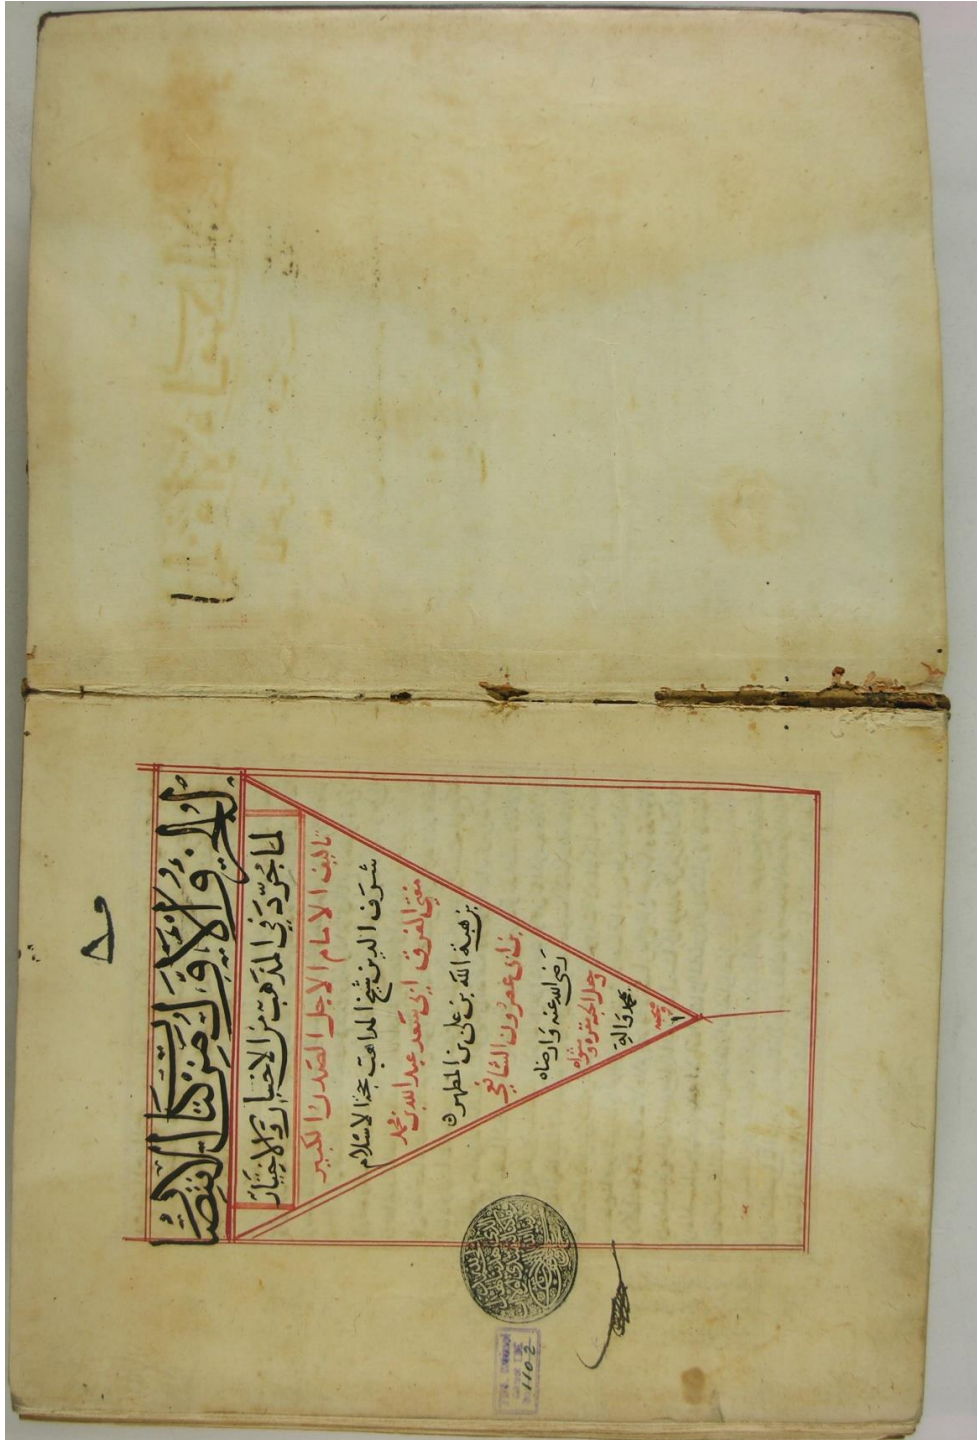 الجزؤ الاول من كتاب الانتصار
لما جُرّد في المذهب من الاخبار والاختيار
تاليف الامام الاجل الصدر الكبير
شرف الدين شيخ المذاهب حجة الاسلام
مفتي الفرق ابى سعد عبد الله بن محمد
بن هبة الله بن على بن المطهر
بن ابى عصرون الشافعي
رضى الله عنه وارضاه
وجعل الجنة ومثواه
بمحمد واله
1102